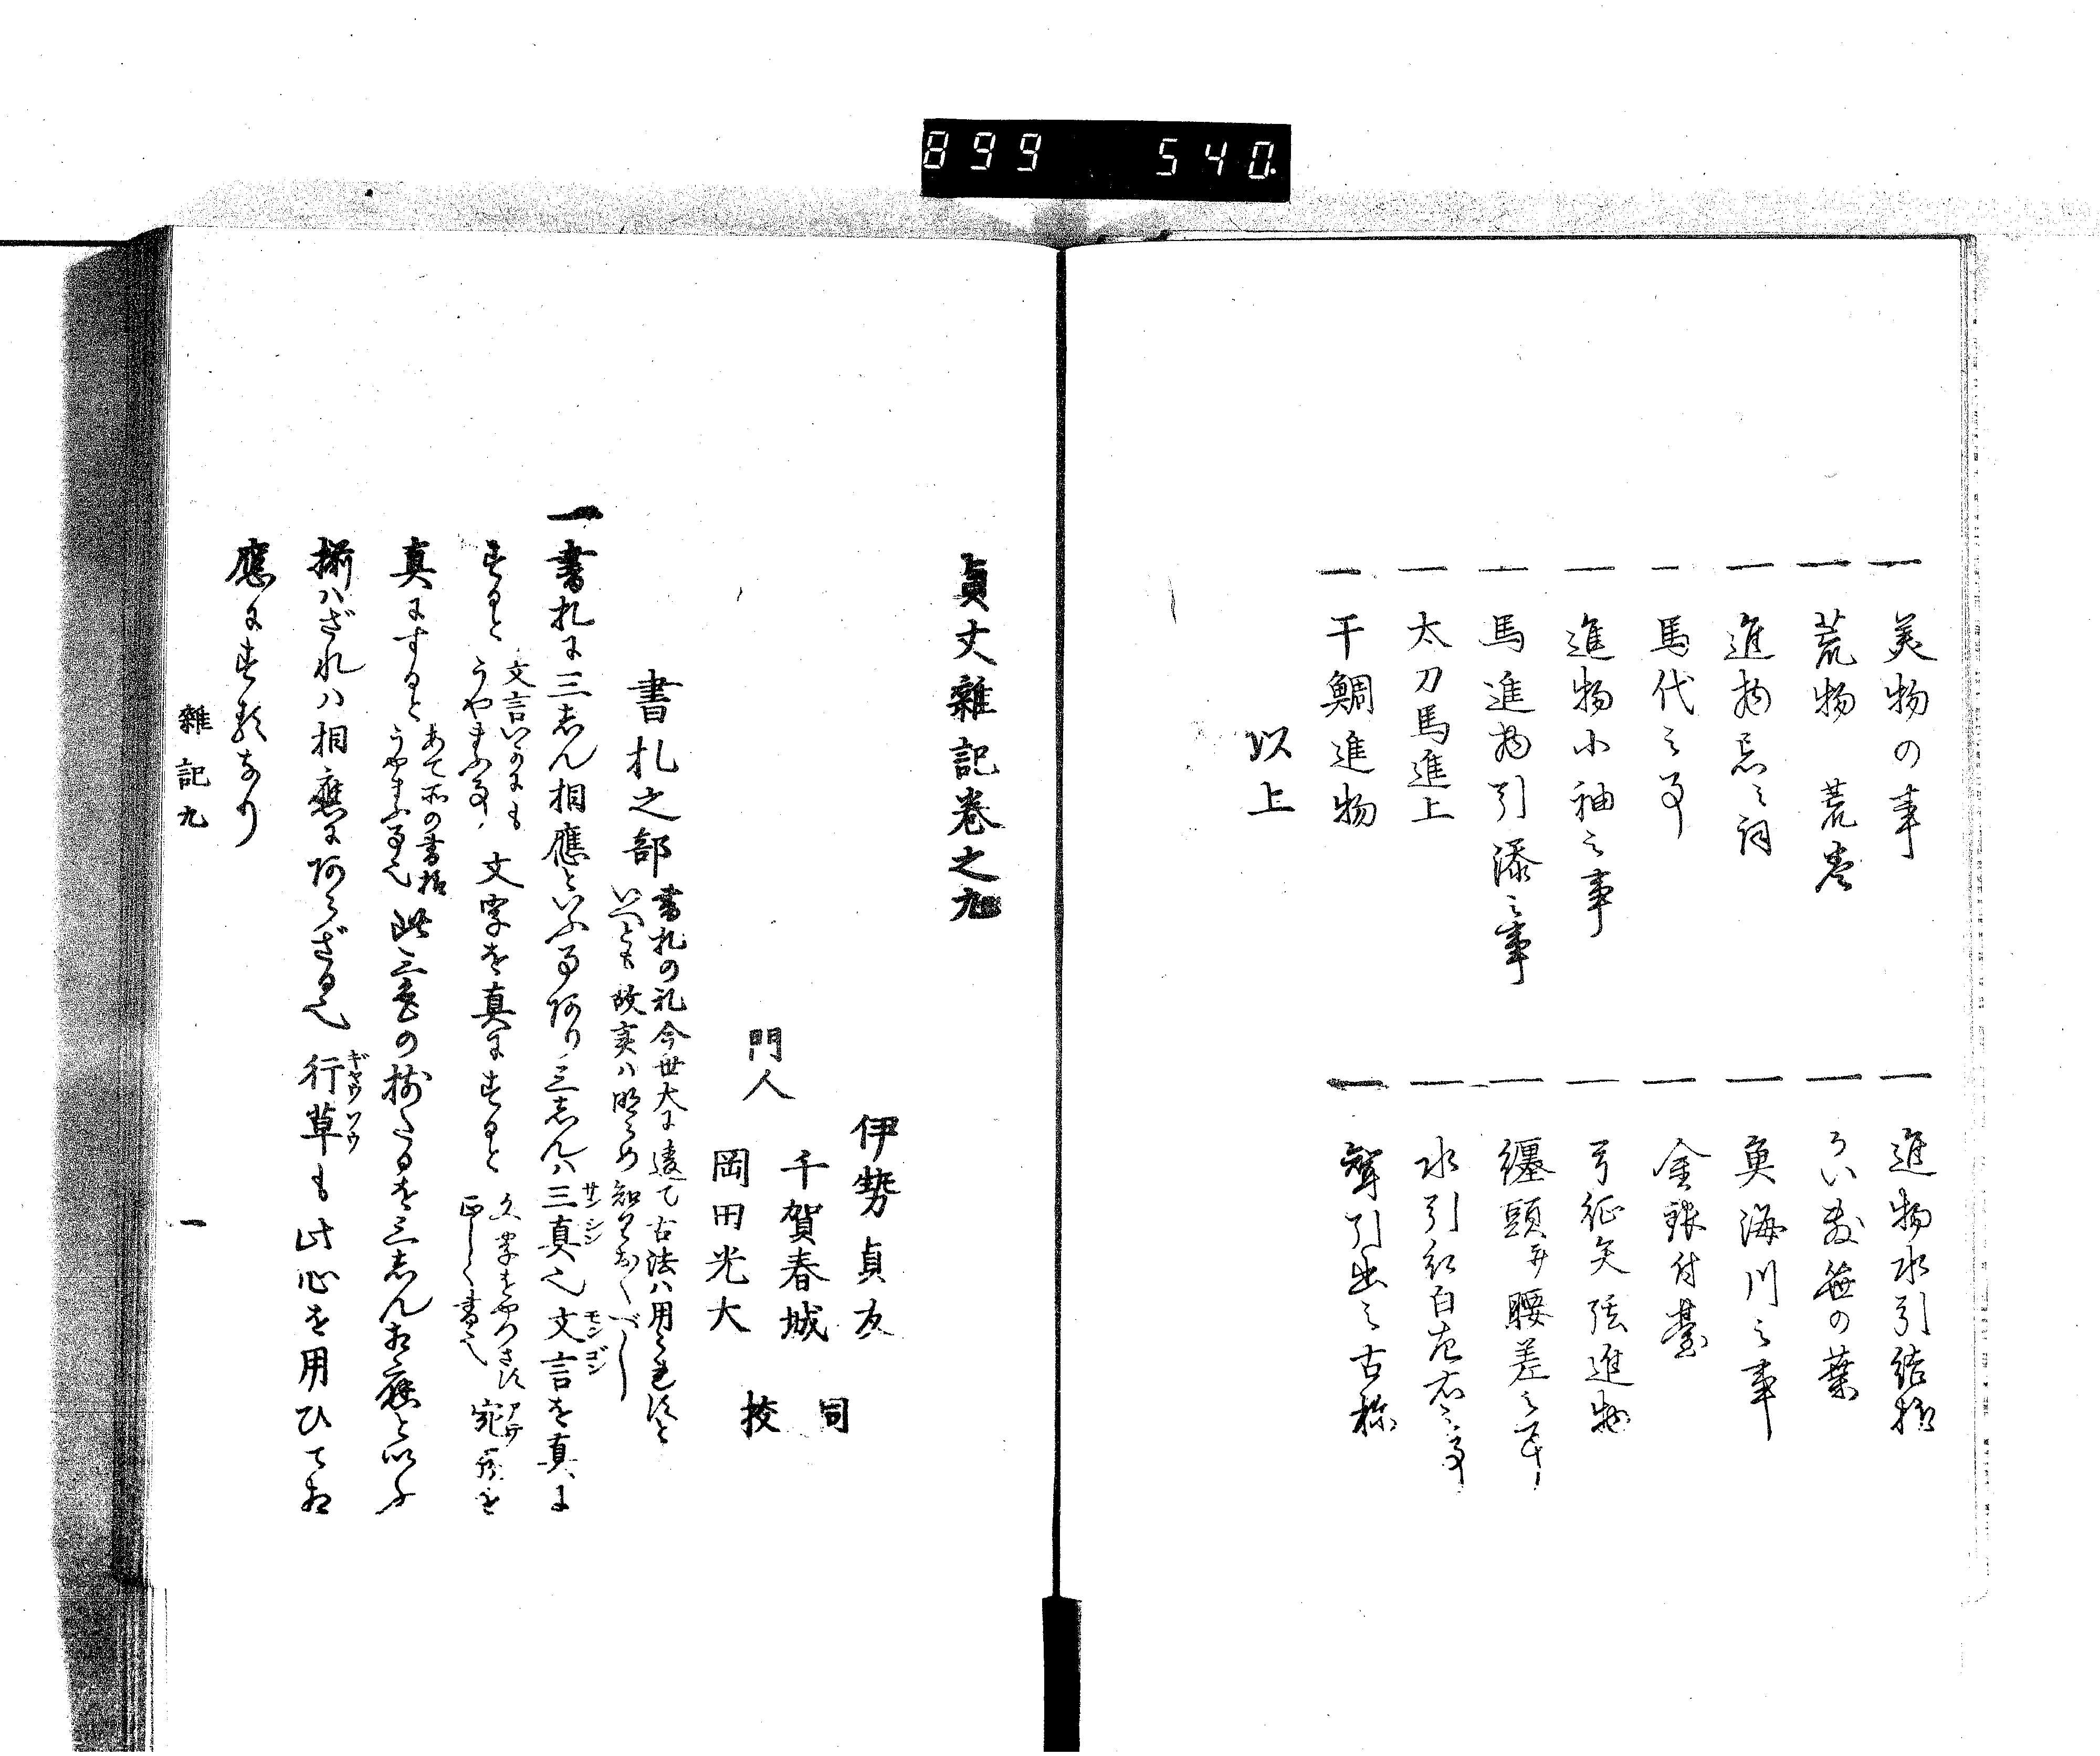 899 540.
一 美物の事
一 進物水引結様
一 荒物 荒巻
一 うい敷笹の葉
一 進物忌ミ詞
一 魚海川之事
一 馬代之事
一 金銀付臺
一 進物小袖之事
一 弓征矢弦進物
一 馬進物引添之事
一 纏頭并腰差之事
一 太刀馬進上
一 水引紅白左右之事
一 干鯛進物
一 聟引出之古称
以上
貞丈雜記巻之九
伊勢貞友
門人 千賀春城 同
岡田光大 挍
書札之部
書札の礼今世大に違て古法ハ用られずと
いへども故実ハ明らめ知りおくべし
一書札に三志ん相應といふ事あり三志んハ三真也文言を真に
サンシン モンゴン
するとうやまふ事文字を真にすると宛所を
文言いかにも
文字をやつさず
正しく書也
アテ
真にすると此三色の揃たるを三志ん相應と以ふ
あて所の書様
うやまふる也
揃ハざれハ相應にあらざる也行草も此心を用ひて相
ギヤウソウ
應にする事なり
雜記九
一